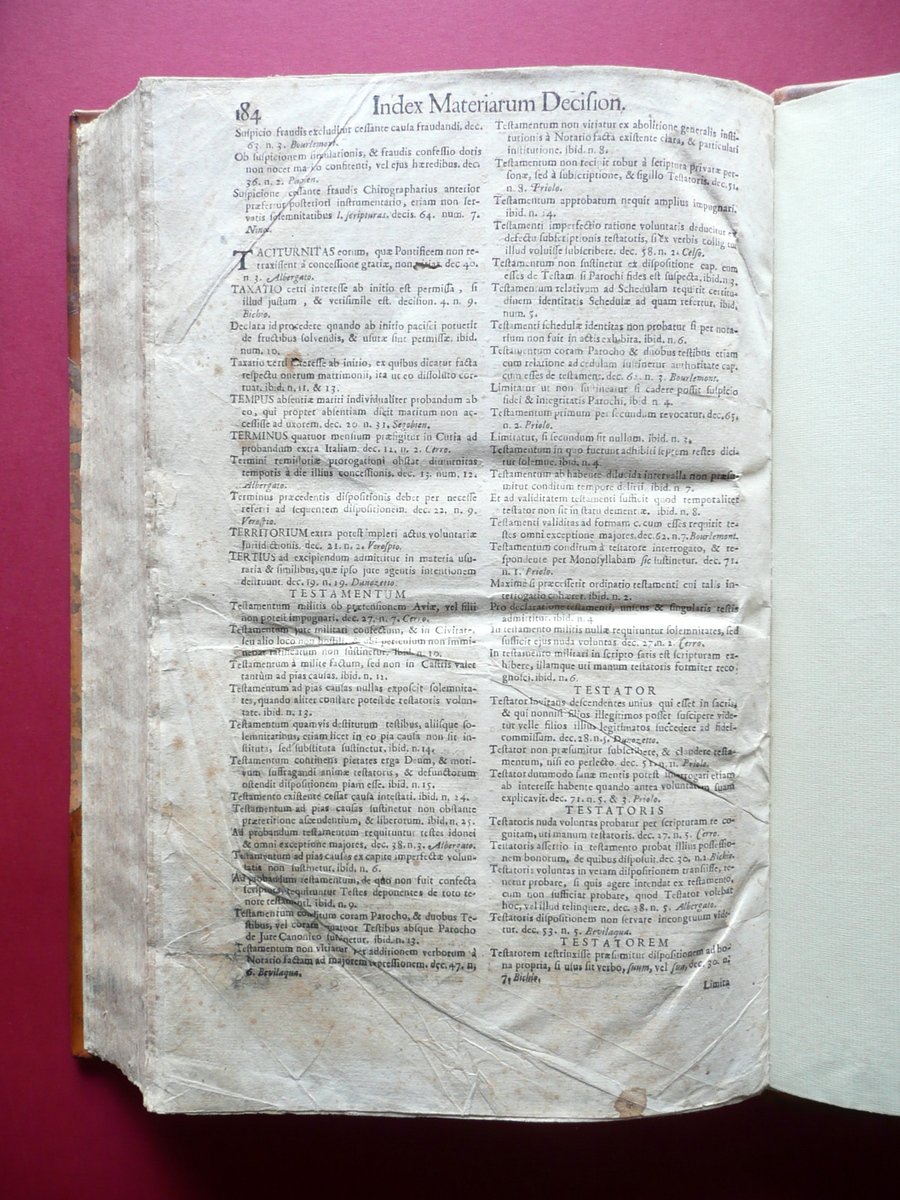 184
Index Materiarum Decision.
Suspicio fraudis excluditur cessante causa fraudandi. dec.
63. n. 3. Bourlemont.
Ob suspicionem simulationis, & fraudis confessio dotis
non nocet marito confitenti, vel ejus hæredibus. dec.
36. n. 2.
Suspicione cessante fraudis Chirographarius anterior
præfertur posteriori instrumentario, etiam non ser-
vatis solemnitatibus l. scripturas. decis. 64. num. 7.
Ninot.
TACITURNITAS eorum, quæ Pontificem non re-
traxissent à concessione gratiæ, non dec. 40.
n. 3. Albergato.
TAXATIO certi interesse ab initio est permissa, si
illud justum, & verisimile est. decision. 4. n. 9.
Bichio.
Declara id procedere quando ab initio pacisci potuerit
de fructibus solvendis, & usuræ sint permissæ. ibid.
num. 10.
Taxatio certi interesse ab initio, ex quibus dicatur facta
respectu onerum matrimonii, ita ut eo dissoluto cor-
ruat. ibid. n. 11. & 13.
TEMPUS absentiæ mariti individualiter probandum ab
eo, qui propter absentiam dicit maritum non ac-
cessisse ad uxorem. dec. 20. n. 31. Segobien.
TERMINUS quatuor mensium præfigitur in Curia ad
probandum extra Italiam. dec. 12. n. 2. Cerro.
Termini remissoriæ prorogationi obstat diuturnitas
temporis à die illius concessionis. dec. 13. num. 12.
Albergato.
Terminus præcedentis dispositionis debet per necesse
referri ad sequentem dispositionem. dec. 22. n. 9.
Verospio.
TERRITORIUM extra potest impleri actus voluntariæ
Jurisdictionis. dec. 21. n. 2. Verospio.
TERTIUS ad excipiendum admittitur in materia usu-
raria & similibus, quæ ipso jure agentis intentionem
destruunt. dec. 19. n. 19. Dunozetto.
TESTAMENTUM
Testamentum militis ob prætensionem Aviæ, vel filii
non potest impugnari. dec. 27. n. 7. Cerro.
Testamentum jure militari confectum, & in Civitate,
seu alio loco non hostili, & ubi periculum non immi-
nebat ratificatum non sustinetur. ibid. n. 10.
Testamentum à milite factum, sed non in Castris valet
tantum ad pias causas. ibid. n. 12.
Testamentum ad pias causas nullas exposcit solemnita-
tes, quando aliter constare potest de testatoris volun-
tate. ibid. n. 13.
Testamentum quamvis destitutum testibus, aliisque so-
lemnitatibus, etiam licet in eo pia causa non sit in-
stituta, sed substituta sustinetur. ibid. n. 14.
Testamentum continens pietates erga Deum, & moti-
vum suffragandi animæ testatoris, & defunctorum
ostendit dispositionem piam esse. ibid. n. 15.
Testamento existente cessat causa intestati. ibid. n. 24.
Testamentum ad pias causas sustinetur non obstante
præteritione ascendentium, & liberorum. ibid. n. 25.
Ad probandum testamentum requiruntur testes idonei
& omni exceptione majores. dec. 38. n. 3. Albergato.
Testamentum ad pias causas ex capite imperfectæ volun-
tatis non sustinetur. ibid. n. 6.
Ad probandum testamentum, de quo non fuit confecta
scriptura, requiruntur Testes deponentes de toto te-
nore testamenti. ibid. n. 9.
Testamentum conditum coram Parocho, & duobus Te-
stibus, vel coram quatuor Testibus absque Parocho
de Jure Canonico sustinetur. ibid. n. 13.
Testamentum non vitiatur per additionem verborum à
Notario factam ad majorem expressionem. dec. 47. n.
6. Bevilaqua.
Testamentum non vitiatur ex abolitione generalis insti-
tutionis à Notario facta existente clara, & particulari
institutione. ibid. n. 8.
Testamentum non recipit robur à scriptura privatæ per-
sonæ, sed à subscriptione, & sigillo Testatoris. dec. 51.
n. 8. Priolo.
Testamentum approbatum nequit amplius impugnari.
ibid. n. 14.
Testamenti imperfectio ratione voluntatis deducitur ex
defectu subscriptionis testatoris, si ex verbis
illud voluisse subscribere. dec. 58. n. 2. Celso.
Testamentum non sustinetur ex dispositione cap. cum
esses de Testam. si Parochi fides est suspecta. ibid. n. 3.
Testamentum relativum ad Schedulam requirit certitu-
dinem identitatis Schedulæ ad quam refertur. ibid.
num. 5.
Testamenti schedulæ identitas non probatur si per nota-
rium non fuit in actis exhibita. ibid. n. 6.
Testamentum coram Parocho & duobus testibus etiam
cum relatione ad cedulam sustinetur authoritate cap.
cum esses de testament. dec. 62. n. 3. Bourlemont.
Limitatur ut non sustineatur si cadere possit suspicio
fidei & integritatis Parochi. ibid. n. 4.
Testamentum primum per secundum revocatur. dec. 65.
n. 2. Priolo.
Limitatur, si secundum sit nullum. ibid. n. 3.
Testamentum in quo fuerunt adhibiti septem testes dici-
tur solemne. ibid. n. 4.
Testamentum ab habente dilucida intervalla non præsu-
mitur conditum tempore deliris. ibid. n. 7.
Et ad validitatem testamenti sufficit quod temporalitet
testator non sit in statu dementiæ. ibid. n. 8.
Testamenti validitas ad formam c. cum esses requirit te-
stes omni exceptione majores. dec. 62. n. 7. Bourlemont.
Testamentum conditum à testatore interrogato, & re-
spondente per Monosyllabam sic sustinetur. dec. 71.
n. 1. Priolo.
Maxime si præcesserit ordinatio testamenti cui talis in-
terrogatio cohæret. ibid. n. 2.
Pro declaratione testamenti, unicus & singularis testis
admittitur. ibid. n. 4
In testamento militis nullæ requiruntur solemnitates, sed
sufficit ejus nuda voluntas. dec. 27. n. 2. Cerro.
In testamento militari in scripto satis est scripturam ex-
hibere, illamque uti manum testatoris formiter reco-
gnosci. ibid. n. 6.
TESTATOR
Testator invitans descendentes unius qui esset in sacris,
& qui nonnisi filios illegitimos posset suscipere vide-
tur velle filios illius legitimatos succedere ad fidei-
commissum. dec. 28. n. 5. Dunozetto.
Testator non præsumitur subscribere, & claudere testa-
mentum, nisi eo perfecto. dec. 51. n. 11. Priolo.
Testator dummodo sanæ mentis potest interrogari etiam
ab interesse habente quando antea voluntatem suam
explicavit. dec. 71. n. 5. & 3. Priolo.
TESTATORIS
Testatoris nuda voluntas probatur per scripturam re co-
gnitam, uti manum testatoris. dec. 27. n. 5. Cerro.
Testatoris assertio in testamento probat illius possessio-
nem bonorum, de quibus disposuit. dec. 30. n. 2. Bichio.
Testatoris voluntas in vetam dispositionem transiisse, te-
netur probare, si quis agere intendat ex testamento,
cum non sufficiat probare, quod Testator volebat
hoc, vel illud relinquere. dec. 38. n. 5. Albergato.
Testatoris dispositionem non servare incongruum vide-
tur. dec. 53. n. 5. Bevilaqua.
TESTATOREM
Testatorem restrinxisse præsumitur dispositionem ad bo-
na propria, si usus sit verbo, suum, vel sua. dec. 30. n.
7. Bichio.
Limita